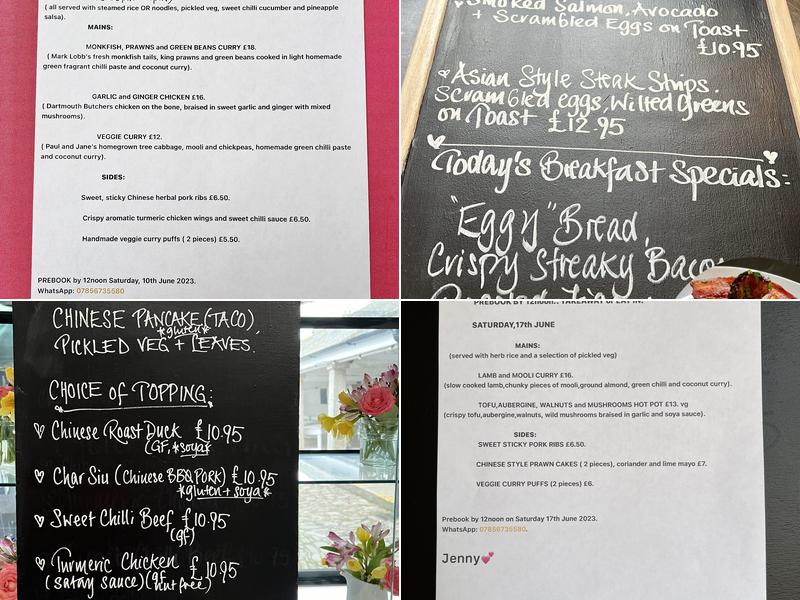 ( all served with steamed rice OR noodles, pickled veg, sweet chilli cucumber and pineapple
salsa).
MAINS:
MONKFISH, PRAWNS and GREEN BEANS CURRY £18.
( Mark Lobb's fresh monkfish tails, king prawns and green beans cooked in light homemade
green fragrant chilli paste and coconut curry).
GARLIC and GINGER CHICKEN £16.
( Dartmouth Butchers chicken on the bone, braised in sweet garlic and ginger with mixed
mushrooms).
VEGGIE CURRY £12.
( Paul and Jane's homegrown tree cabbage, mooli and chickpeas, homemade green chilli paste
and coconut curry).
SIDES:
Sweet, sticky Chinese herbal pork ribs £6.50.
Crispy aromatic turmeric chicken wings and sweet chilli sauce £6.50.
Handmade veggie curry puffs ( 2 pieces) £5.50.
PREBOOK by 12noon Saturday, 10th June 2023.
WhatsApp: 07856735580
Smoked Salmon, Avocado
+ Scrambled Eggs on Toast
£10.95
Asian Style Steak Strips.
Scrambled eggs, Wilted Greens
on Toast £12.95
Today's Breakfast Specials:
"Eggy" Bread,
Crispy Streaky Bacon
CHINESE PANCAKE (TACO),
*gluten*
PICKLED VEG + LEAVES.
CHOICE of TOPPING:
Chinese Roast Duck £10.95
(GF, *soya*
Char Siu (Chinese BBQ PORK) £10.95
*gluten + soya*
Sweet Chilli Beef £10.95
(gf)
Turmeric Chicken £10.95
(satay sauce) (gf nut free)
PREBOOK by 12noon.. TAKEAWAY or EAT IN.
SATURDAY,17th JUNE
MAINS:
(served with herb rice and a selection of pickled veg)
LAMB and MOOLI CURRY £16.
(slow cooked lamb,chunky pieces of mooli,ground almond, green chilli and coconut curry).
TOFU,AUBERGINE, WALNUTS and MUSHROOMS HOT POT £13. vg
(crispy tofu,aubergine,walnuts, wild mushrooms braised in garlic and soya sauce).
SIDES:
SWEET STICKY PORK RIBS £6.50.
CHINESE STYLE PRAWN CAKES ( 2 pieces), coriander and lime mayo £7.
VEGGIE CURRY PUFFS (2 pieces) £6.
Prebook by 12noon on Saturday 17th June 2023.
WhatsApp: 07856735580.
Jenny💕